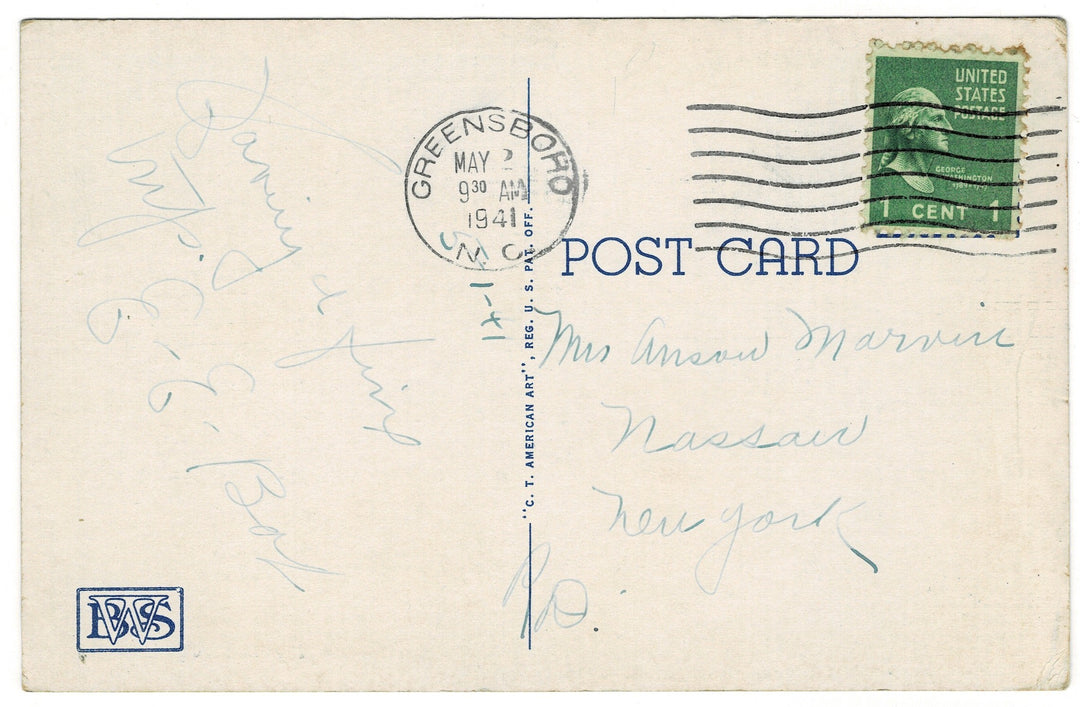 Having a fine
Mrs. E. E. Bat
GREENSBORO
MAY 2
9 30 AM
1941
N. C.
5-1-41
UNITED
STATES
POSTAGE
GEORGE
WASHINGTON
1 CENT 1
POST CARD
"C. T. AMERICAN ART", REG. U. S. PAT. OFF.
Mrs Anson Marvin
Nassau
New York
R.D.
BWS